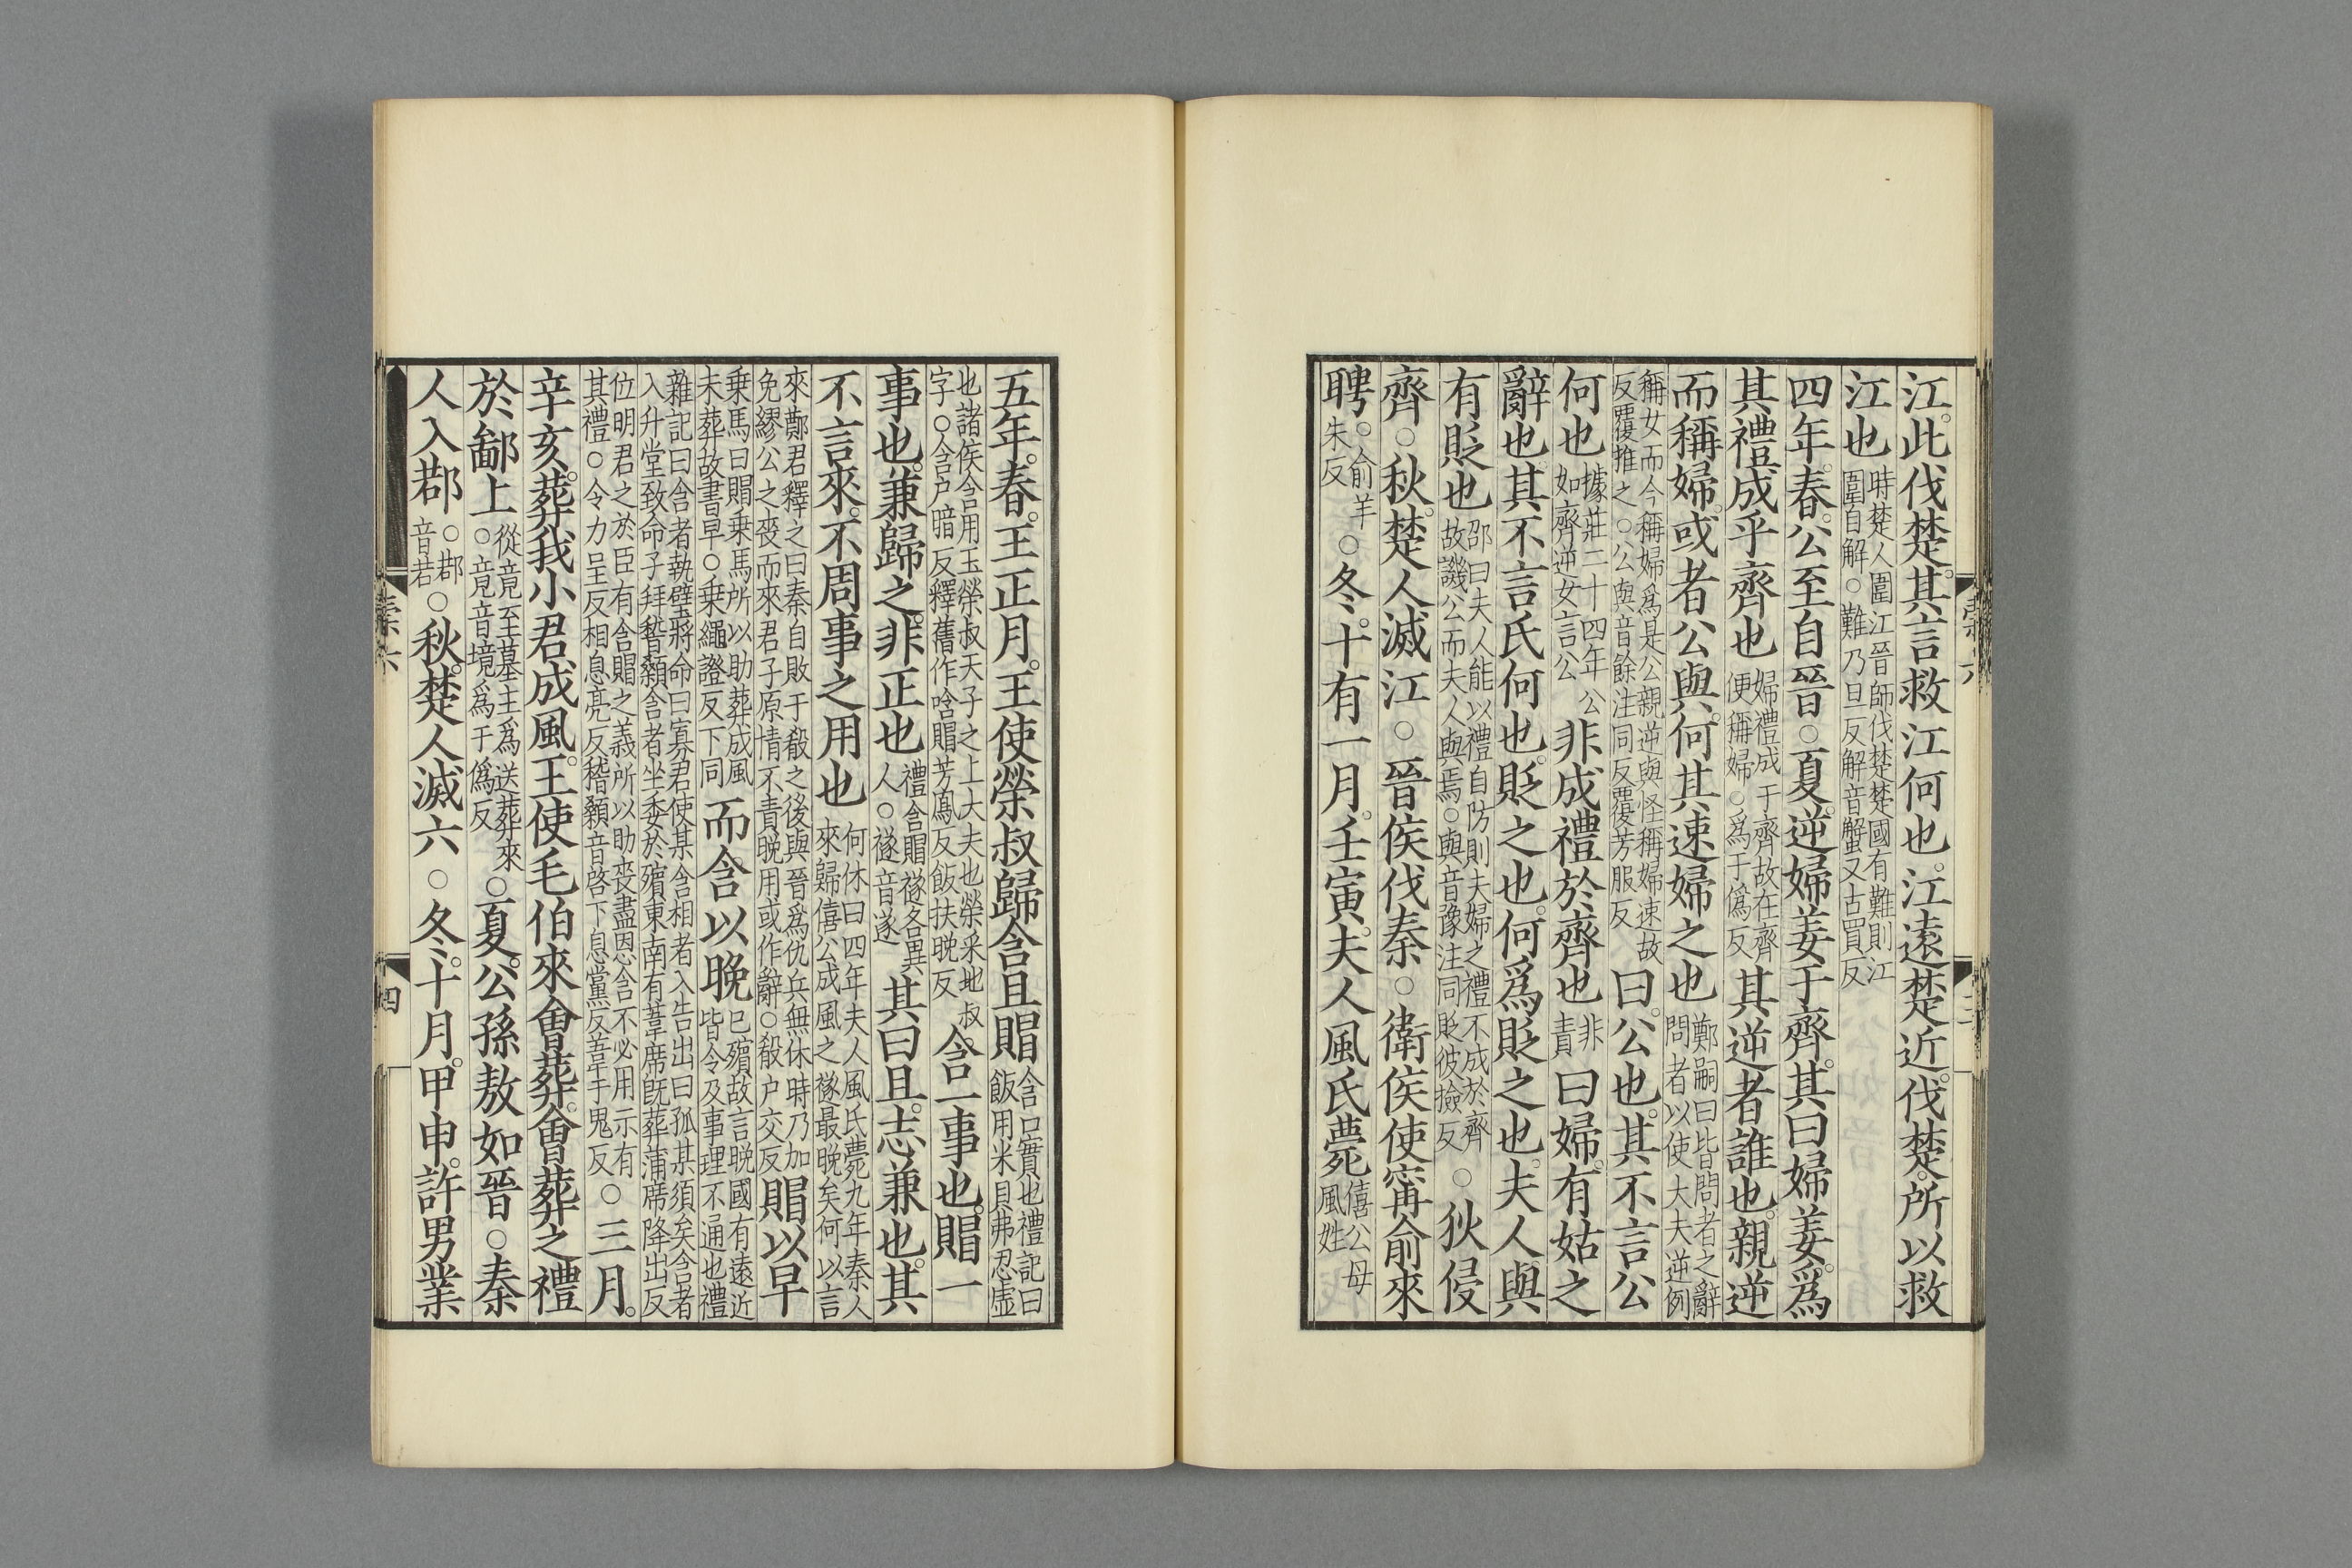 江。此伐楚。其言救江何也。江遠楚近。伐楚。所以救
江也時楚人圍江晉師伐楚楚國有難則江圍自解○難乃旦反解音蟹又古買反
四年。春。公至自晉○夏。逆婦姜于齊。其曰婦姜。爲
其禮成乎齊也婦禮成于齊故在齊便稱婦○爲于僞反其逆者誰也。親逆
而稱婦。或者公與。何其速婦之也鄭嗣曰皆問者之辭問者以使大夫逆例
稱女而今稱婦爲是公親逆與怪稱婦速故反覆推之○公與音餘注同反覆芳服反曰。公也。其不言公
何也據莊二十四年公如齊逆女言公非成禮於齊也非責曰婦。有姑之
辭也。其不言氏何也。貶之也。何爲貶之也。夫人與
有貶也邵曰夫人能以禮自防則夫婦之禮不成於齊故譏公而夫人與焉○與音豫注同貶彼撿反○狄侵
齊○秋。楚人滅江○晉侯伐秦○衛侯使甯俞來
聘。俞羊朱反○冬。十有一月。壬寅。夫人風氏薨僖公母風姓
五年。春。王正月。王使榮叔歸含且賵含口實也禮記曰飯用米貝弗忍虛
也諸侯含用玉榮叔天子之上大夫也榮采地叔字○含户暗反釋舊作唅賵芳鳳反飯扶晚反含一事也。賵一
事也。兼歸之。非正也禮含賵襚各異人○襚音遂其曰且。志兼也。其
不言來。不周事之用也何休曰四年夫人風氏薨九年秦人來歸僖公成風之襚最晚矣何以言
來鄭君釋之曰秦自敗于殽之後與晉爲仇兵無休時乃加免繆公之喪而來君子原情不責晚用或作辭○殽户交反賵以早
乘馬曰賵乘馬所以助葬成風未葬故書早○乘繩證反下同而含以晚已殯故言晚國有遠近皆令及事理不通也禮
雜記曰含者執璧將命曰寡君使某含相者入告出曰孤某須矣含者入升堂致命子拜稽顙含者坐委於殯東南有葦席既葬蒲席降出反
位明君之於臣有含賵之義所以助喪盡恩含不必用示有其禮○令力呈反相息亮反稽顙音啓下息黨反葦于鬼反○三月。
辛亥。葬我小君成風。王使毛伯來會葬。會葬之禮
於鄙上從竟至墓主爲送葬來○竟音境爲于僞反○夏。公孫敖如晉○秦
人入鄀○鄀音若○秋。楚人滅六○冬。十月。甲申。許男業